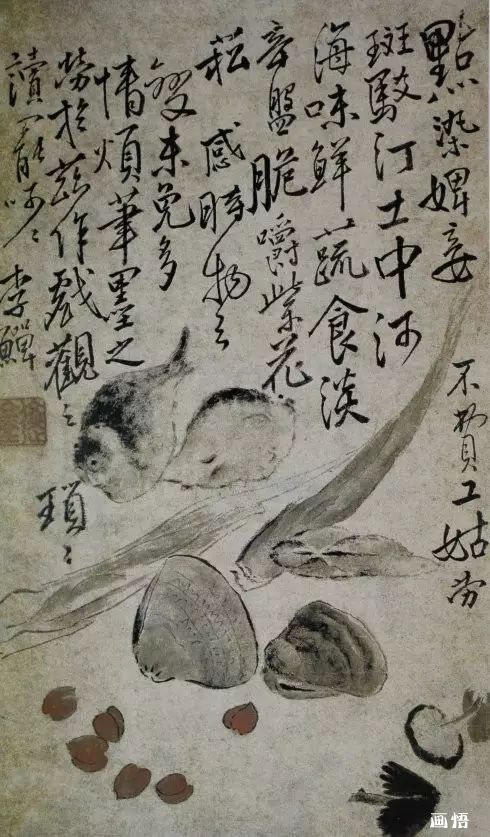 點染婢妾
不費工姑勞
斑駁汀土中河
海味鮮蔬食淡
辛盤脆嚼紫花
菘感時物之
變未免多
情煩筆墨之
勞於茲作戲觀之
瑣之
讀
李鱓
画悟